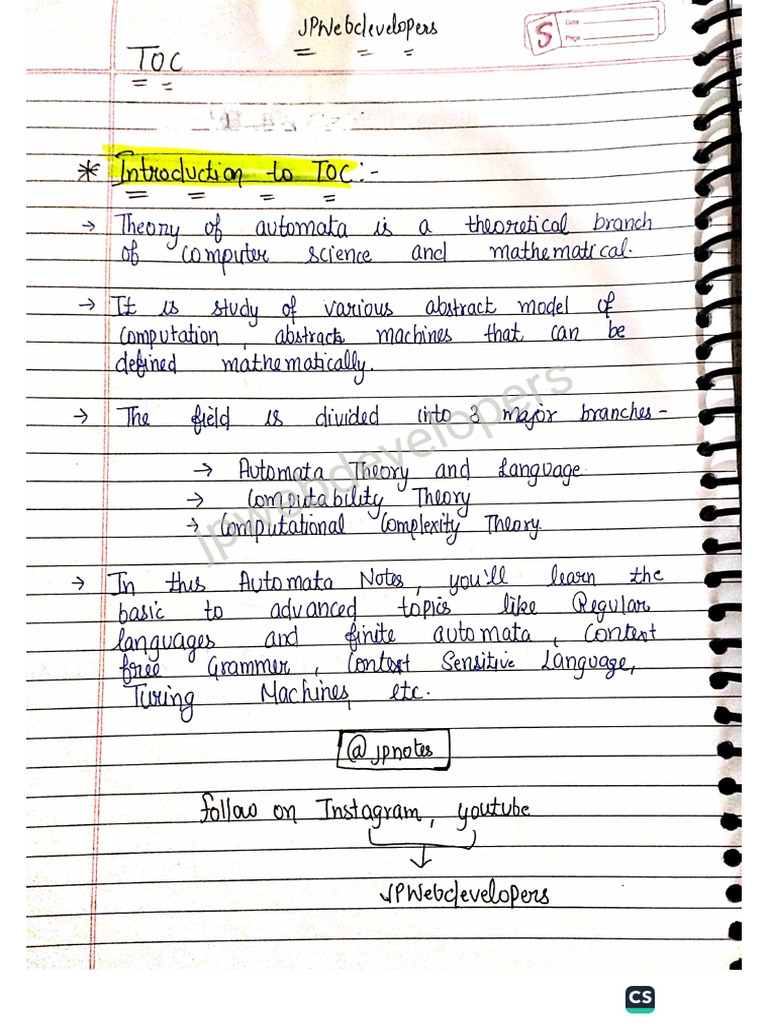 JPWebdevelopers
TOC
5 Date
Page
* Introduction to TOC:-
→ Theory of automata is a theoretical branch
of computer science and mathematical.
→ It is study of various abstract model of
computation, abstract machines that can be
defined mathematically.
→ The field is divided into 3 major branches-
→ Automata Theory and Language
→ Computability Theory
→ Computational Complexity Theory.
→ In this Automata Notes, you'll learn the
basic to advanced topics like Regular
languages and finite automata, Context
free Grammer, Context Sensitive Language,
Turing Machines, etc.
@jpnotes
follow on Instagram, youtube
↓
JPWebdevelopers
jpwebdevelopers
CS